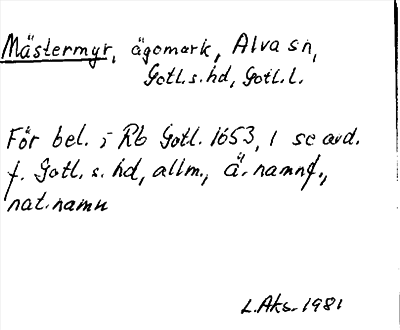 Mästermyr, ägomark, Alva sn,
Gotl.s.hd, Gotl.l.
För bel. i Rb Gotl. 1653, 1 se avd.
f. Gotl. s. hd, allm., ä. namnf.,
nat.namn
L.Aks. 1981